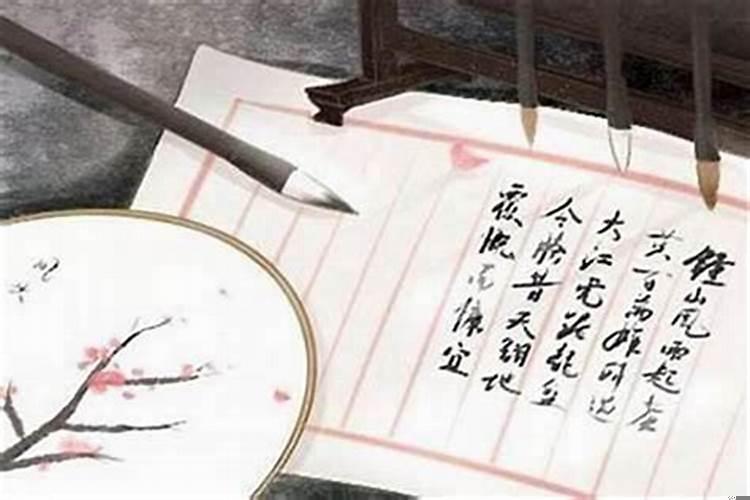 鍾山风雨起苍
黄百万雄师过
大江虎踞龙盘
今胜昔天翻地
覆慨而慷宜